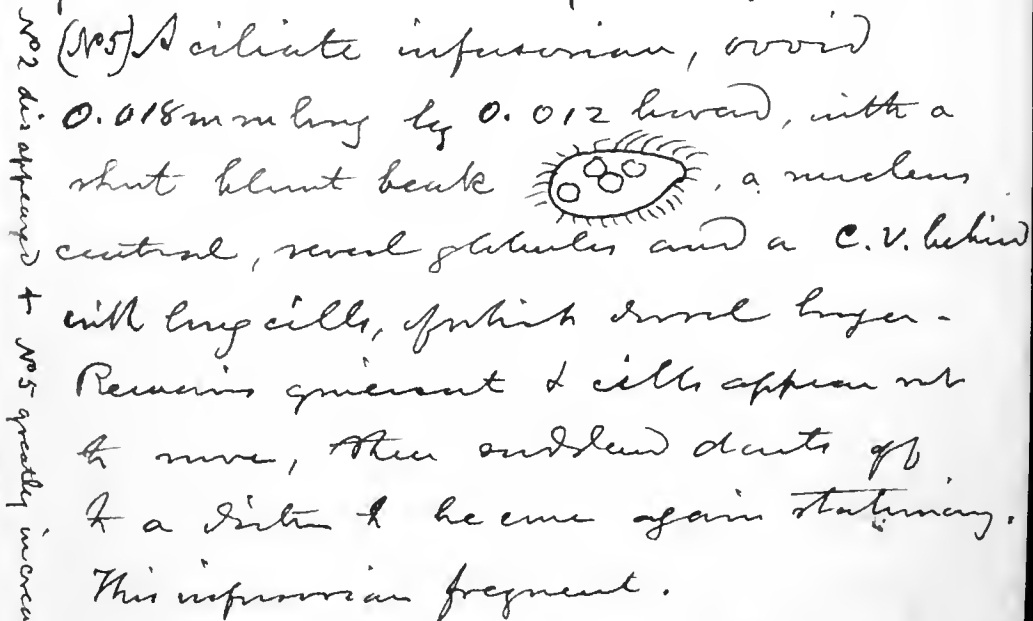 (No5) A ciliate infusorian, ovoid
0.018mm long by 0.012 broad, with a
short blunt beak , a nucleus
central, several globules and a C.V. behind
with long cills, of which dorsal longer -
Remains quiescent & cills appear not
to move, then suddend darts off
to a distance & become again stationary.
This infusorian frequent.
No2 disappeared + No5 greatly increa